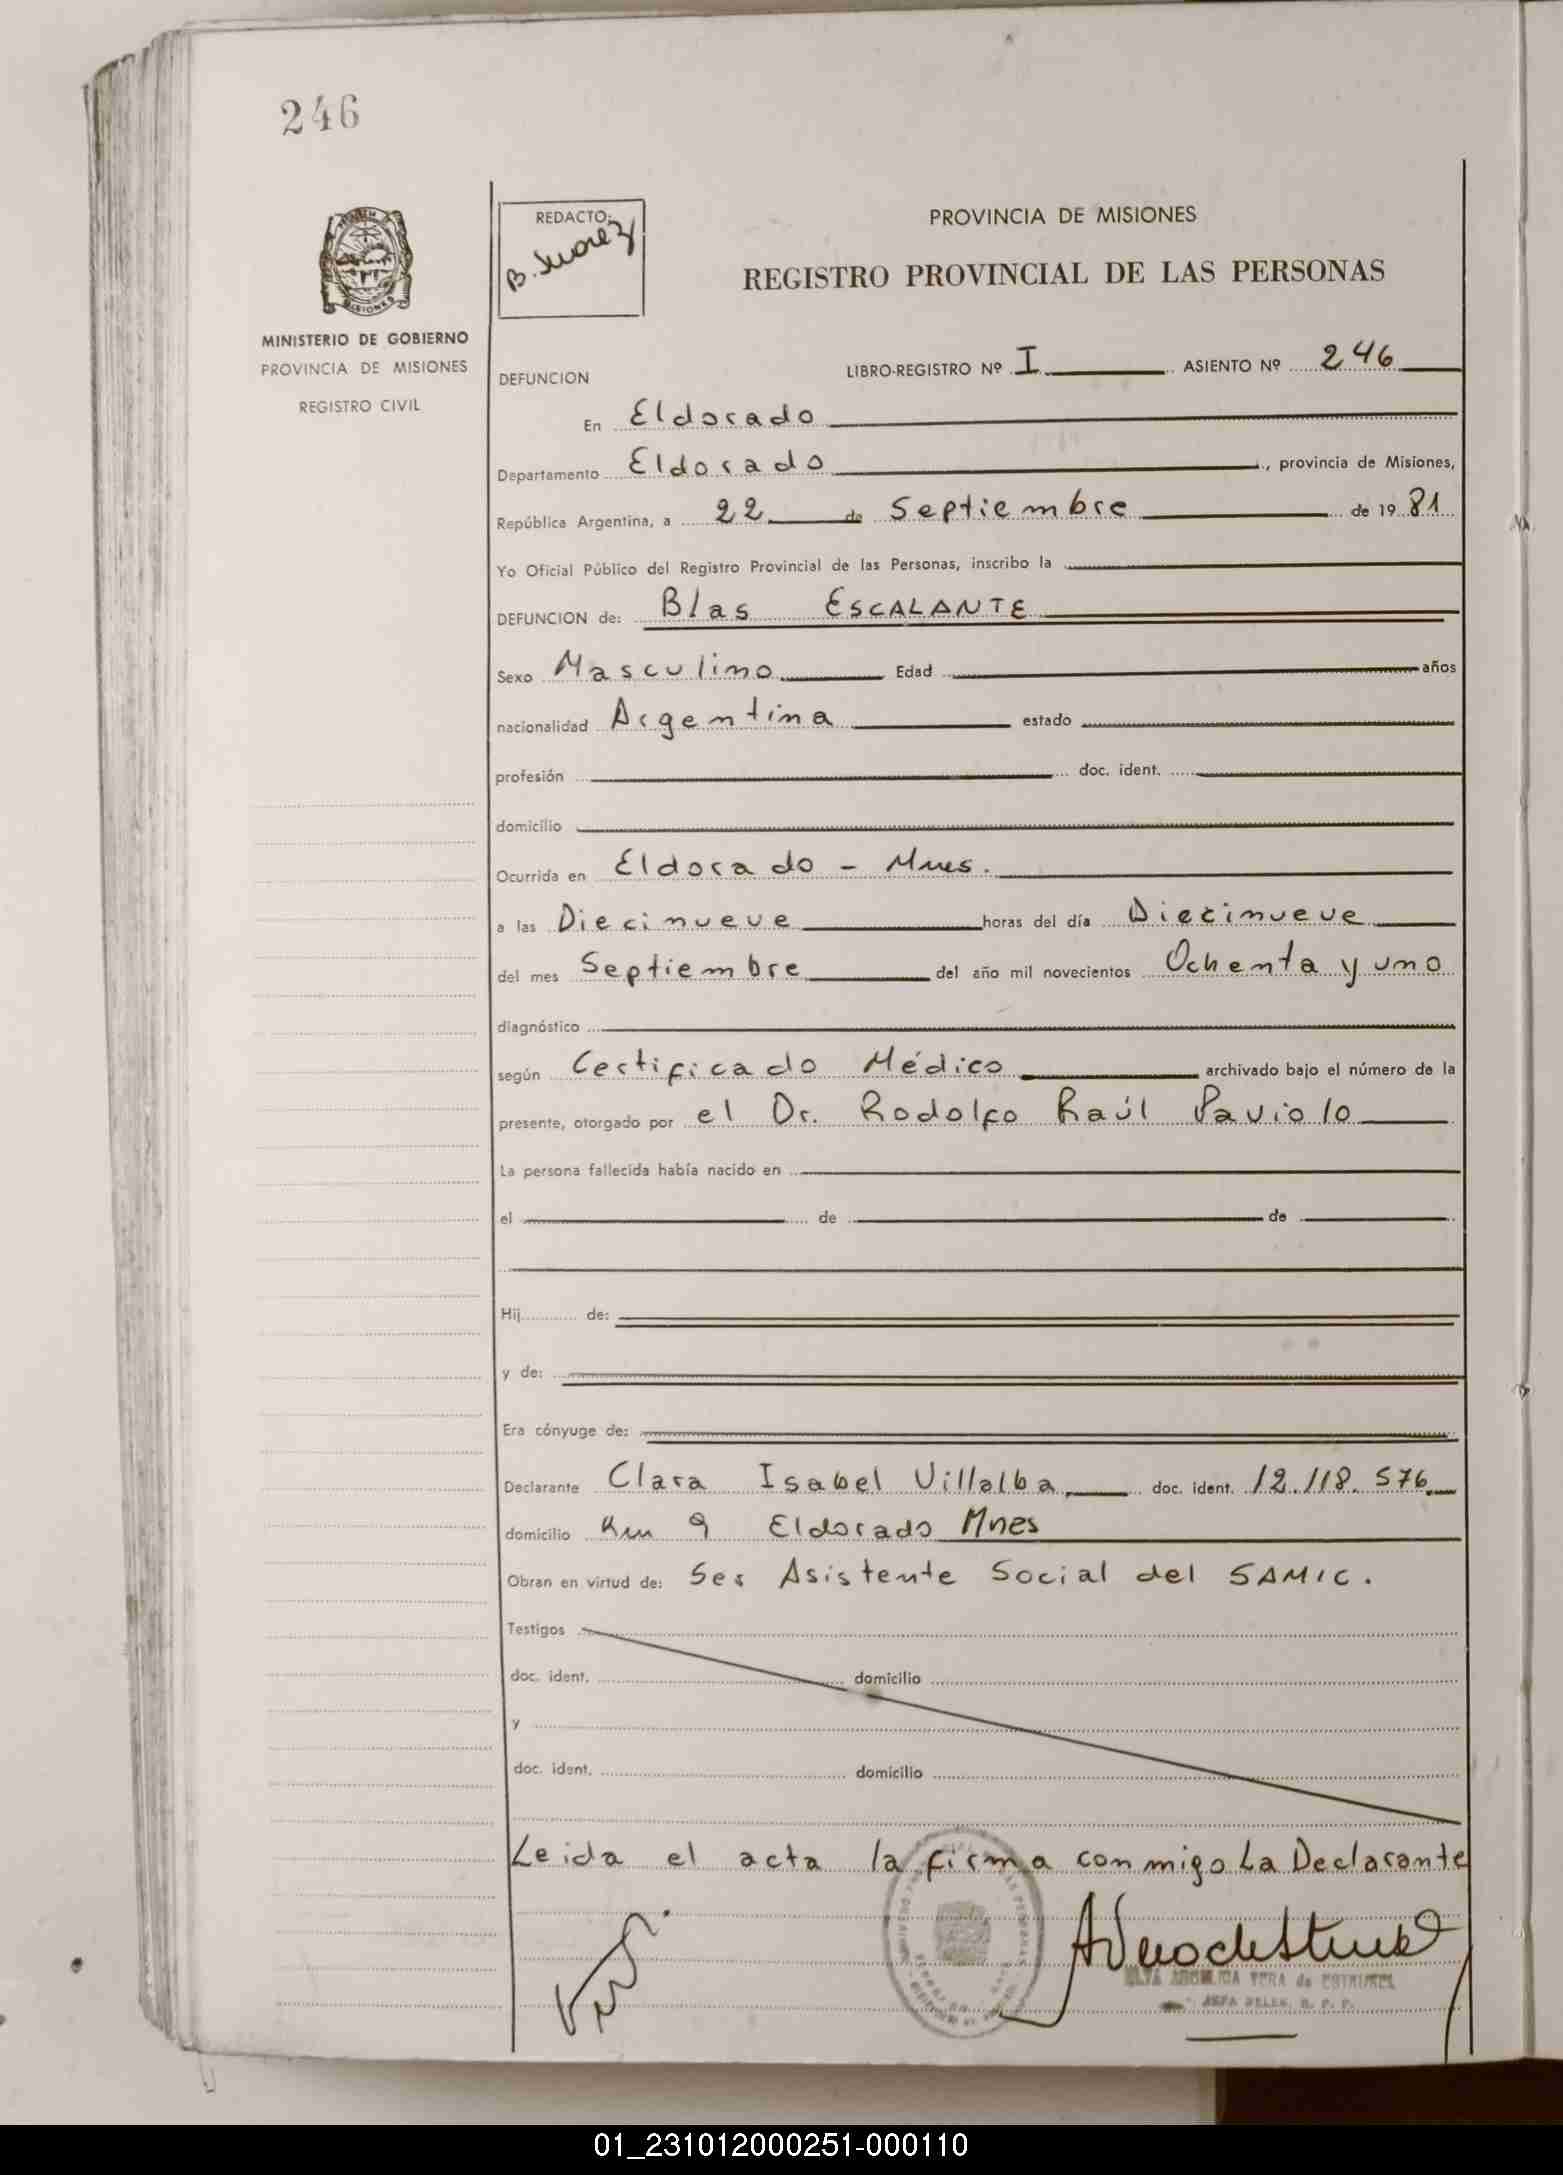 246
REDACTO:
B. Suarez
PROVINCIA DE MISIONES
REGISTRO PROVINCIAL DE LAS PERSONAS
MINISTERIO DE GOBIERNO
PROVINCIA DE MISIONES
REGISTRO CIVIL
DEFUNCION LIBRO-REGISTRO Nº I ASIENTO Nº 246
En Eldorado
Departamento Eldorado, provincia de Misiones,
República Argentina, a 22 de Septiembre de 1981
Yo Oficial Público del Registro Provincial de las Personas, inscribo la
DEFUNCION de: Blas ESCALANTE
Sexo Masculino Edad años
nacionalidad Argentina estado
profesión doc. ident.
domicilio
Ocurrida en Eldorado - Mnes.
a las Diecinueve horas del día Diecinueve
del mes Septiembre del año mil novecientos Ochenta y uno
diagnóstico
según Certificado Médico archivado bajo el número de la
presente, otorgado por el Dr. Rodolfo Raúl Paviolo
La persona fallecida había nacido en
el de de
Hij de:
y de:
Era cónyuge de:
Declarante Clara Isabel Villalba, doc. ident. 12.118.576
domicilio Km 9 Eldorado Mnes
Obran en virtud de: Ser Asistente Social del SAMIC.
Testigos
doc. ident. domicilio
y
doc. ident. domicilio
Leida el acta la firma conmigo La Declarante
VERA de
JEFA DELEG. R. P. P.
01_231012000251-000110